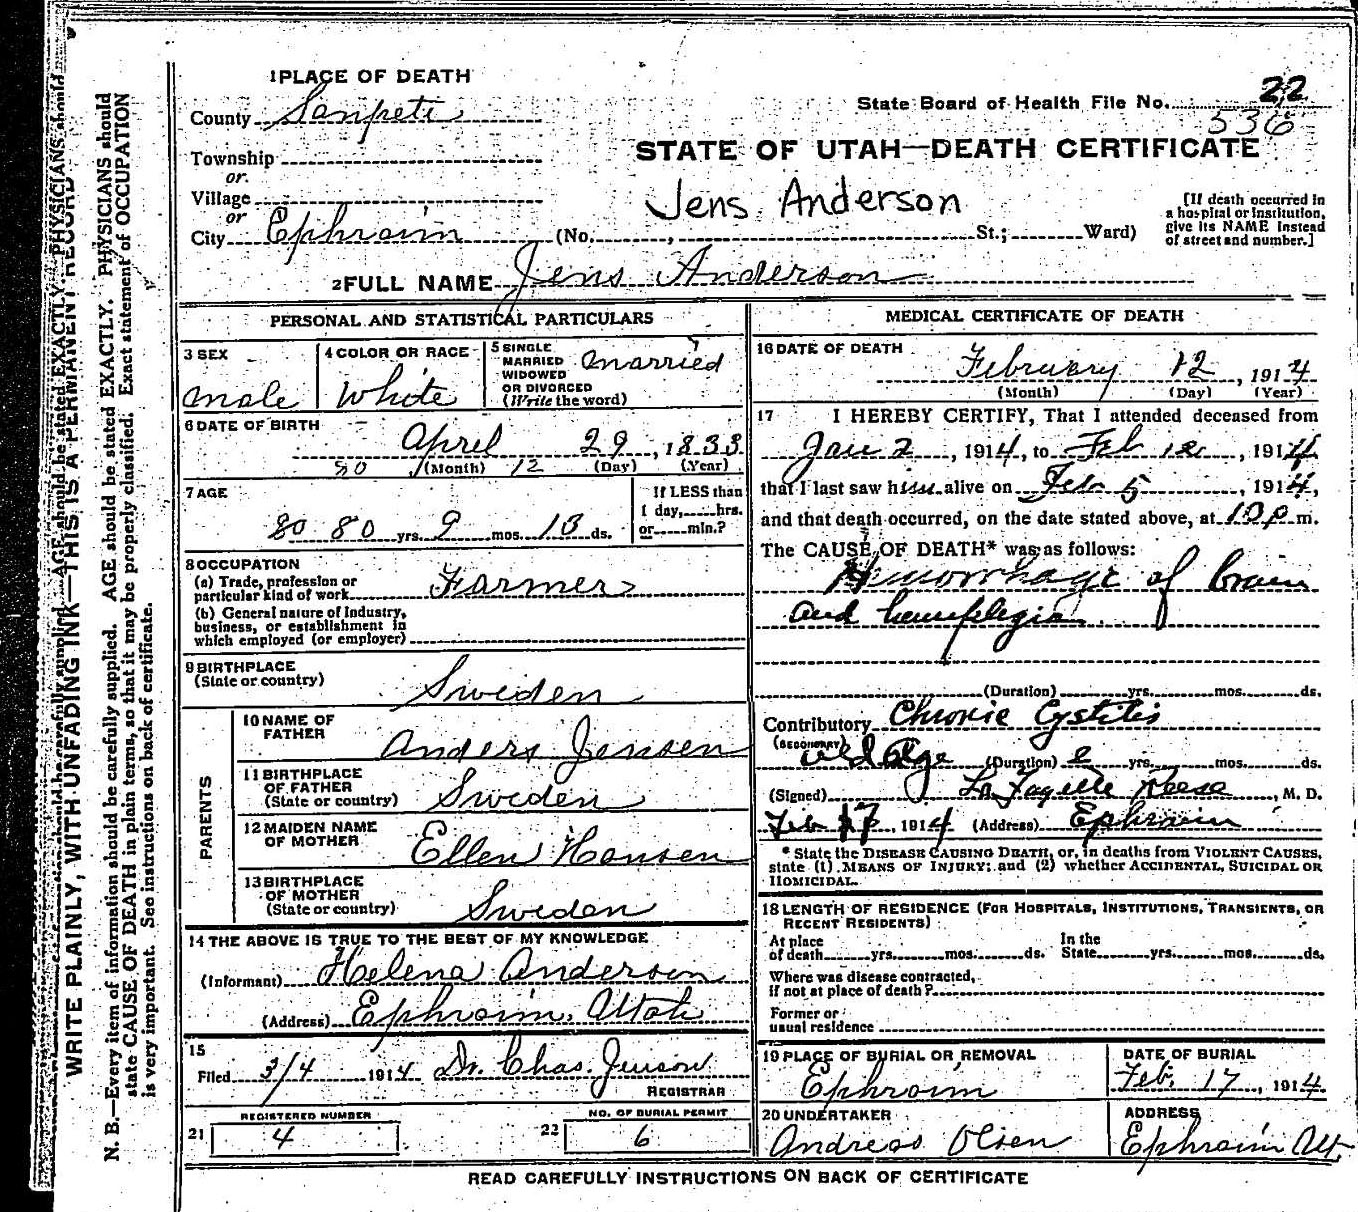 WRITE PLAINLY, WITH UNFADING INK—THIS IS A PERMANENT RECORD
N. B.—Every item of information should be carefully supplied. AGE should be stated EXACTLY. PHYSICIANS should
state CAUSE OF DEATH in plain terms, so that it may be properly classified. Exact statement of OCCUPATION
is very important. See instructions on back of certificate.
1 PLACE OF DEATH
County Sanpete
Township
or
Village
or
City Ephraim (No. , St.; Ward)
State Board of Health File No. 22
536
STATE OF UTAH—DEATH CERTIFICATE
Jens Anderson
[If death occurred in
a hospital or institution,
give its NAME instead
of street and number.]
2 FULL NAME Jens Anderson
PERSONAL AND STATISTICAL PARTICULARS
3 SEX
male
4 COLOR OR RACE
White
5 SINGLE
MARRIED
WIDOWED
OR DIVORCED
(Write the word)
married
6 DATE OF BIRTH
April 29, 1833
80 (Month) 12 (Day) (Year)
7 AGE
80 80 yrs. 9 mos. 13 ds.
If LESS than
1 day, hrs.
or min.?
8 OCCUPATION
(a) Trade, profession or
particular kind of work Farmer
(b) General nature of industry,
business, or establishment in
which employed (or employer)
9 BIRTHPLACE
(State or country)
Sweden
PARENTS
10 NAME OF
FATHER
Anders Jensen
11 BIRTHPLACE
OF FATHER
(State or country) Sweden
12 MAIDEN NAME
OF MOTHER
Ellen Hansen
13 BIRTHPLACE
OF MOTHER
(State or country) Sweden
14 THE ABOVE IS TRUE TO THE BEST OF MY KNOWLEDGE
(Informant) Helena Anderson
(Address) Ephraim, Utah
15
Filed 3/4 1914 Dr. Chas. Jenson
REGISTRAR
REGISTERED NUMBER
21 4
NO. OF BURIAL PERMIT
22 6
MEDICAL CERTIFICATE OF DEATH
16 DATE OF DEATH
February 12, 1914
(Month) (Day) (Year)
17 I HEREBY CERTIFY, That I attended deceased from
Jan 2, 1914, to Feb 12, 1914,
that I last saw him alive on Feb 5, 1914,
and that death occurred, on the date stated above, at 10 p m.
The CAUSE OF DEATH* was as follows:
Hemorrhage of brain
and hemiplegia
(Duration) yrs. mos. ds.
Contributory Chronic Cystitis
(SECONDARY)
old age (Duration) 2 yrs. mos. ds.
(Signed) La Fayette Rees, M. D.
Feb 17, 1914 (Address) Ephraim
* State the DISEASE CAUSING DEATH, or, in deaths from VIOLENT CAUSES,
state (1) MEANS OF INJURY; and (2) whether ACCIDENTAL, SUICIDAL OR
HOMICIDAL.
18 LENGTH OF RESIDENCE (FOR HOSPITALS, INSTITUTIONS, TRANSIENTS, OR
RECENT RESIDENTS)
At place
of death yrs. mos. ds.
In the
State yrs. mos. ds.
Where was disease contracted,
if not at place of death?
Former or
usual residence
19 PLACE OF BURIAL OR REMOVAL
Ephraim
DATE OF BURIAL
Feb. 17, 1914
20 UNDERTAKER
Andreas Olsen
ADDRESS
Ephraim Ut.
READ CAREFULLY INSTRUCTIONS ON BACK OF CERTIFICATE